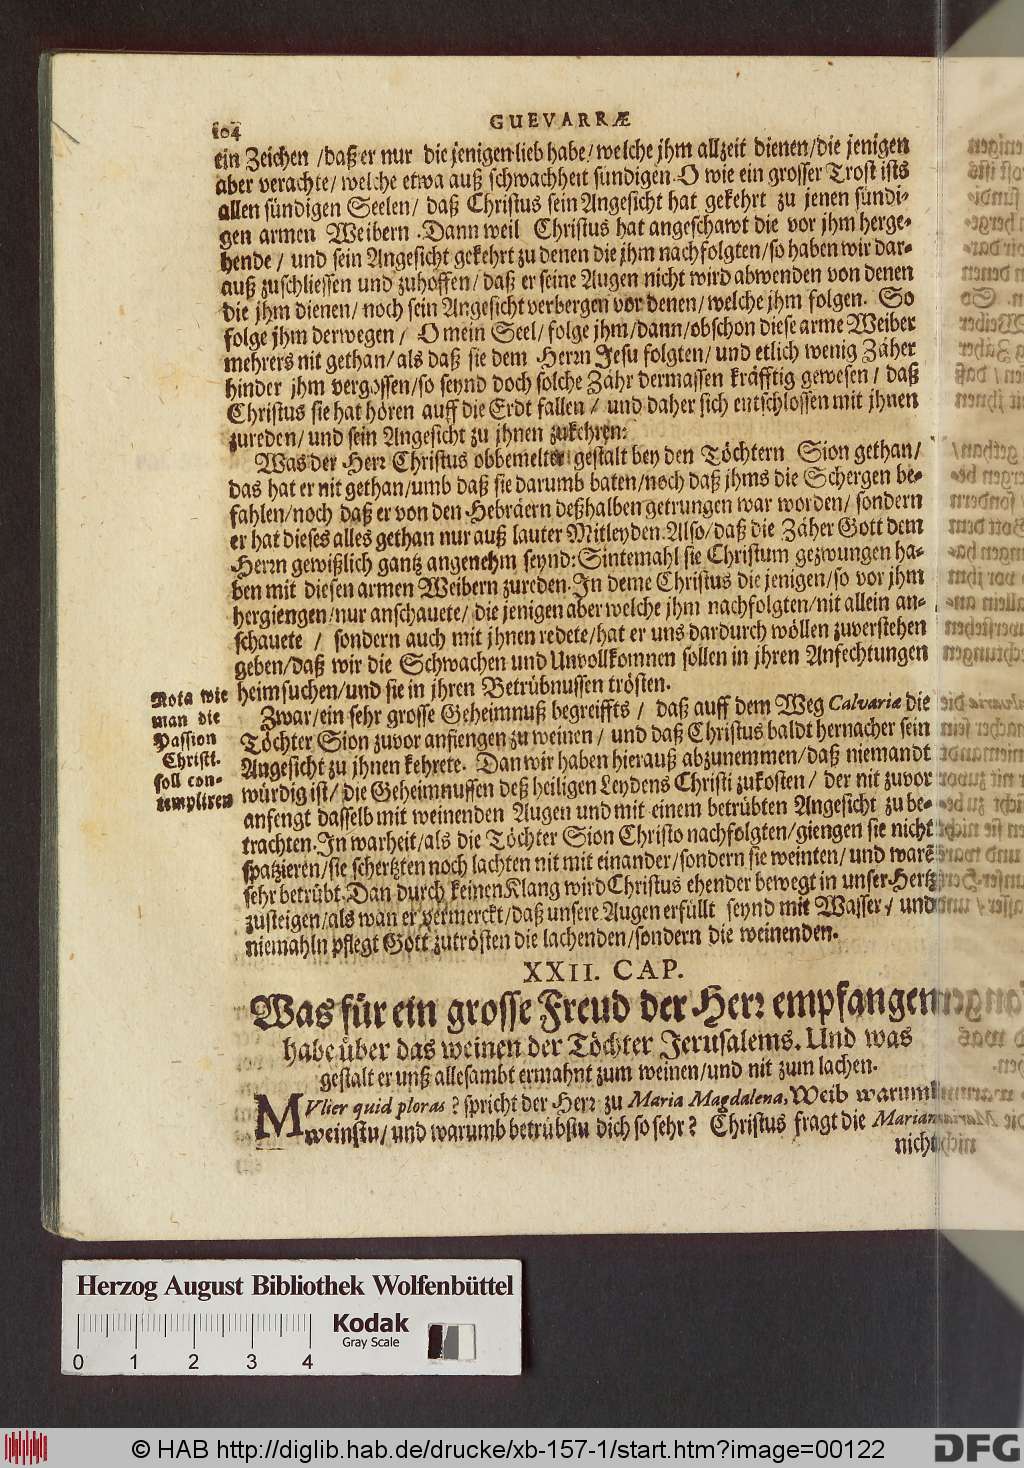 104
GUEVARRÆ
ein Zeichen /daß er nur die jenigen lieb habe/ welche jhm allzeit dienen/die jenigen
aber verachte/ welche etwa auß schwachheit sündigen. O wie ein grosser Trost ists
allen sündigen Seelen/ daß Christus sein Angesicht hat gekehrt zu jenen sündi-
gen armen Weibern . Dann weil Christus hat angeschawt die vor jhm herge-
hende / und sein Angesicht gekehrt zu denen die jhm nachfolgten/so haben wir dar-
auß zuschliessen und zuhoffen/ daß er seine Augen nicht wird abwenden von denen
die jhm dienen/ noch sein Angesicht verbergen vor denen/ welche jhm folgen. So
folge jhm derwegen / O mein Seel/ folge jhm/dann/obschon diese arme Weiber
mehrers nit gethan/ als daß sie dem Herrn Jesu folgten/ und etlich wenig Zäher
hinder jhm vergossen/so seynd doch solche Zähr dermassen kräfftig gewesen / daß
Christus sie hat hören auff die Erdt fallen / und daher sich entschlossen mit jhnen
zureden/ und sein Angesicht zu jhnen zukehren:
Was der Herr Christus obbemelter gestalt bey den Töchtern Sion gethan/
das hat er nit gethan/umb daß sie darumb baten/noch daß jhms die Schergen be-
fahlen/noch daß er von den Hebräern deßhalben getrungen war worden/ sondern
er hat dieses alles gethan nur auß lauter Mitleyden. Also/ daß die Zäher Gott dem
Herrn gewißlich gantz angenehm seynd: Sintemahl sie Christum gezwungen ha-
ben mit diesen armen Weibern zureden. In deme Christus die jenigen/so vor jhm
hergiengen/nur anschauete/ die jenigen aber welche jhm nachfolgten/nit allein an-
schauete / sondern auch mit jhnen redete/hat er uns dardurch wöllen zuverstehen
geben/daß wir die Schwachen und Unvollkomnen sollen in jhren Anfechtungen
heimsuchen/und sie in jhren Betrübnussen trösten.
Nota wie
man die
Passion
Christi.
soll con-
templiren
Zwar/ein sehr grosse Geheimnuß begreiffts / daß auff dem Weg Calvariæ die
Töchter Sion zuvor anfiengen zu weinen / und daß Christus baldt hernacher sein
Angesicht zu jhnen kehrete. Dan wir haben hierauß abzunemmen/daß niemandt
würdig ist/ die Geheimnussen deß heiligen Leydens Christi zukosten / der nit zuvor
anfengt dasselb mit weinenden Augen und mit einem betrübten Angesicht zu be-
trachten. In warheit/als die Töchter Sion Christo nachfolgten/giengen sie nicht
spatzieren/sie schertzten noch lachten nit mit einander/sondern sie weinten/ und warē
sehr betrübt. Dan durch keinen Klang wird Christus ehender bewegt in unser Hertz
zusteigen/als wan er vermerckt/daß unsere Augen erfüllt seynd mit Wasser / und
niemahln pflegt Gott zutrösten die lachenden/sondern die weinenden.
XXII. CAP.
Was für ein grosse Freud der Herr empfangen
habe über das weinen der Töchter Jerusalems. Und was
gestalt er unß allesambt ermahnt zum weinen/und nit zum lachen.
MVlier quid ploras ? spricht der Herr zu Maria Magdalena, Weib warumb
weinstu/ und warumb betrübstu dich so sehr? Christus fragt die Mariam
nicht
Herzog August Bibliothek Wolfenbüttel
Kodak
Gray Scale
0 1 2 3 4
© HAB http://diglib.hab.de/drucke/xb-157-1/start.htm?image=00122
DFG